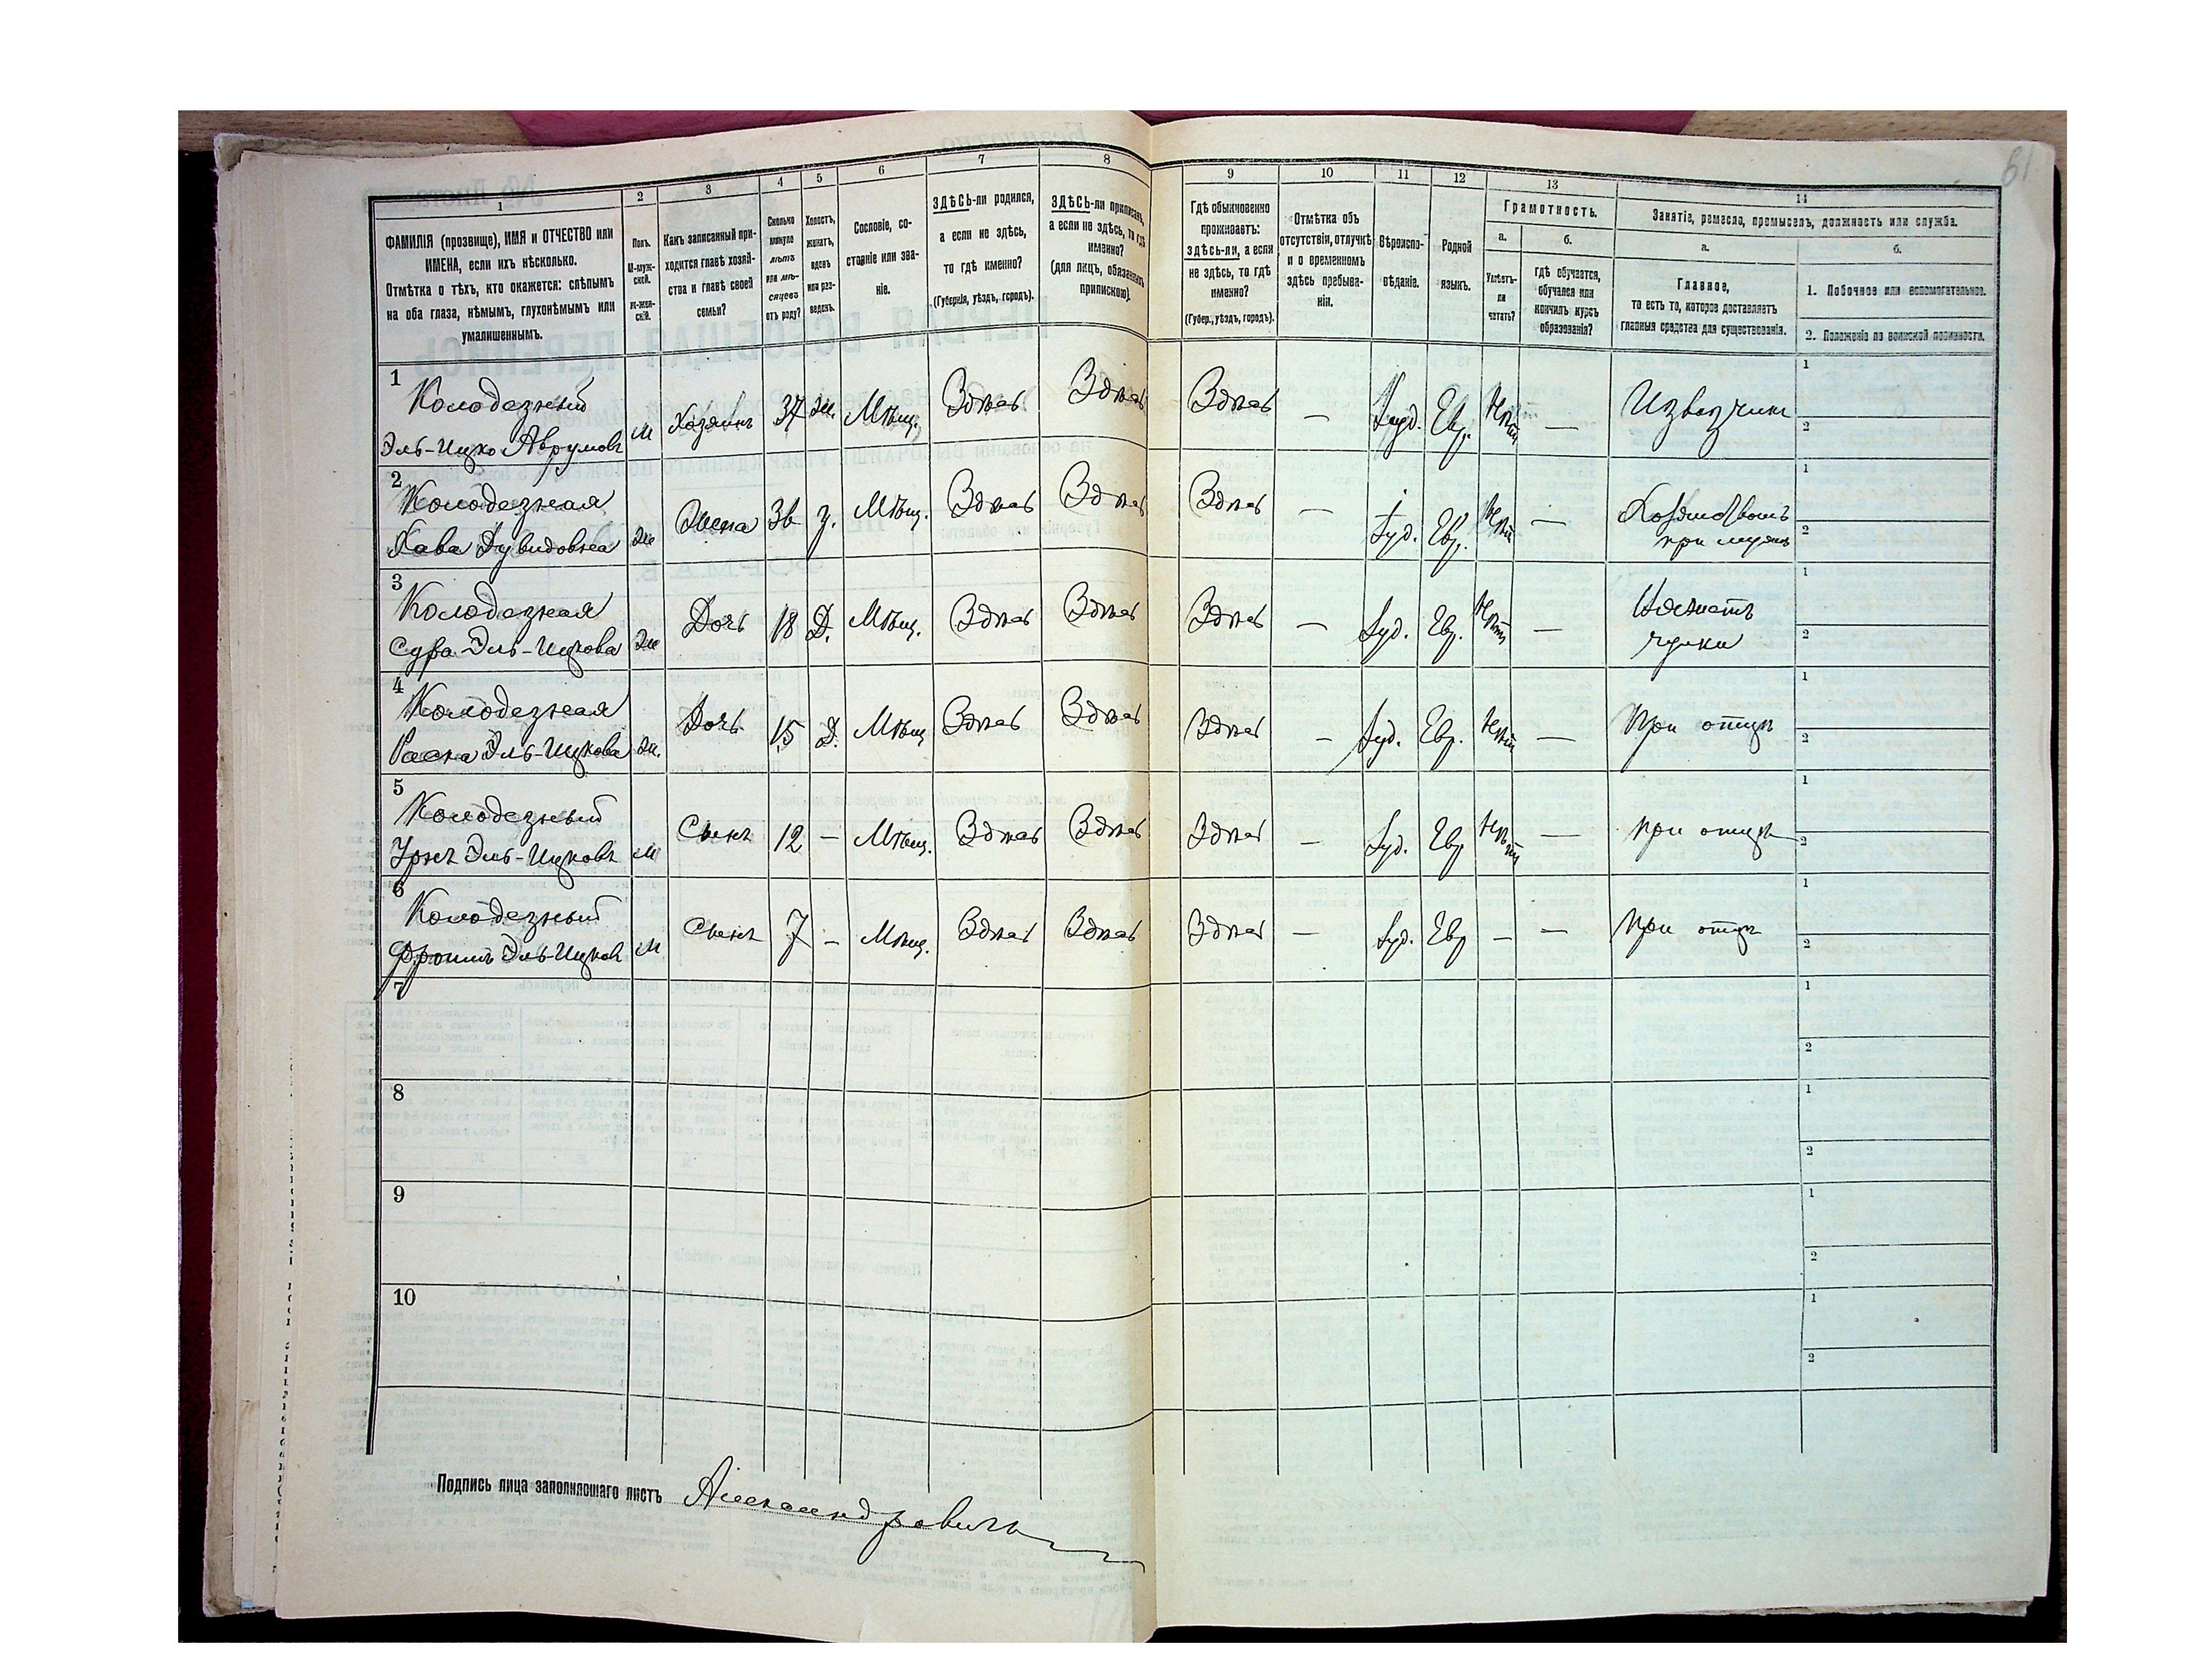 61
1 2 3 4 5 6 7 8 9 10 11 12 13 14
ФАМИЛІЯ (прозвище), ИМЯ и ОТЧЕСТВО или
ИМЕНА, если ихъ нѣсколько.
Отмѣтка о тѣхъ, кто окажется: слѣпымъ
на оба глаза, нѣмымъ, глухонѣмымъ или
умалишеннымъ.
Полъ.
М-муж-
ской.
Ж-жен-
скій.
Какъ записанный при-
ходится главѣ хозяй-
ства и главѣ своей
семьи?
Сколько
минуло
лѣтъ
или мѣ-
сяцевъ
отъ роду?
Холостъ,
женатъ,
вдовъ
или раз-
веденъ.
Сословіе, со-
стояніе или зва-
ніе.
ЗДѢСЬ-ли родился,
а если не здѣсь,
то гдѣ именно?
(Губернія, уѣздъ, городъ).
ЗДѢСЬ-ли приписанъ,
а если не здѣсь, то гдѣ
именно?
(для лицъ, обязанныхъ
припискою).
Гдѣ обыкновенно
проживаетъ:
здѣсь-ли, а если
не здѣсь, то гдѣ
именно?
(Губер., уѣздъ, городъ).
Отмѣтка объ
отсутствіи, отлучкѣ
и о временномъ
здѣсь пребыва-
ніи.
Вѣроиспо-
вѣданіе.
Родной
языкъ.
Грамотность.
а.
Умѣетъ-
ли
читать?
б.
гдѣ обучается,
обучался или
кончилъ курсъ
образованія?
Занятіе, ремесло, промыселъ, должность или служба.
а.
Главное,
то есть то, которое доставляетъ
главныя средства для существованія.
б.
1. Побочное или вспомогательное.
2. Положеніе по воинской повинности.
1 Колодезный
Эль-Ицко Аврумовъ м Хозяинъ 37 ж. Мѣщ. Здѣсь Здѣсь Здѣсь — Іуд. Евр. Нѣтъ — Извозчикъ 1 2
2 Колодезная
Хава Дувидовна ж Жена 36 з. Мѣщ. Здѣсь Здѣсь Здѣсь — Іуд. Евр. Нѣтъ — Хозяйствомъ
при мужѣ 1 2
3 Колодезная
Сура Эль-Ицкова ж Дочь 18 Д. Мѣщ. Здѣсь Здѣсь Здѣсь — Іуд. Евр. Нѣтъ —
чулки 1 2
4 Колодезная
Эль-Ицкова ж. Дочь 15 Д. Мѣщ Здѣсь Здѣсь Здѣсь — Іуд. Евр. Нѣтъ — При отцѣ 1 2
5 Колодезный
Эль-Ицковъ м Сынъ 12 — Мѣщ. Здѣсь Здѣсь Здѣсь — Іуд. Евр Нѣтъ — при отцѣ 1 2
6 Колодезный
Фроимъ Эль-Ицковъ м Сынъ 7 — Мѣщ. Здѣсь Здѣсь Здѣсь — Іуд. Евр — — При отцѣ 1 2
7 1 2
8 1 2
9 1 2
10 1 2
Подпись лица заполнявшаго листъ Александровичъ